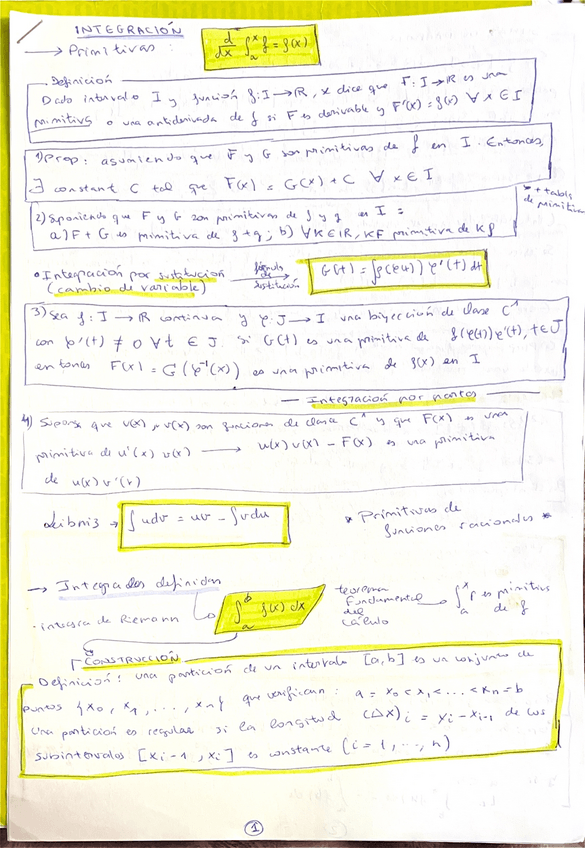 INTEGRACIÓN
→ Primitivas :
d/dx ∫_a^x f = f(x)
Definición
Dado intervalo I y función f: I → ℝ, se dice que F: I → ℝ es una
primitiva o una antiderivada de f si F es derivable y F'(x) = f(x) ∀ x ∈ I
1) Prop: asumiendo que F y G son primitivas de f en I. Entonces,
∃ constant C tal que F(x) = G(x) + C ∀ x ∈ I
2) Suponiendo que F y G son primitivas de f y g en I :
a) F + G es primitiva de f + g ; b) ∀ K ∈ ℝ, KF primitiva de Kf
* + tabla
de primitivas
• Integración por sustitución
(cambio de variable)
fórmula
de
sustitución
G(t) = ∫ f(φ(t)) φ'(t) dt
3) Sea f: I → ℝ continua y φ: J → I una biyección de clase C¹
con φ'(t) ≠ 0 ∀ t ∈ J. si G(t) es una primitiva de f(φ(t)) φ'(t), t ∈ J
entonces F(x) = G(φ⁻¹(x)) es una primitiva de f(x) en I
— Integración por partes
4) Supong que u(x) y v(x) son funciones de clase C¹ y que F(x) es una
primitiva de u'(x) v(x) → u(x) v(x) - F(x) es una primitiva
de u(x) v'(x)
Leibniz → ∫ u dv = uv - ∫ v du
* Primitivas de
funciones racionales *
→ Integrales definidas
∫_a^b f(x) dx
· integral de Riemann
teorema
fundamental
del
cálculo
∫_a^x f es primitiva
de f
CONSTRUCCIÓN
Definición: una partición de un intervalo [a, b] es un conjunto de
puntos {x₀, x₁, ..., xₙ} que verifican: a = x₀ < x₁ < ... < xₙ = b
Una partición es regular si la longitud (Δx)ᵢ = xᵢ - xᵢ₋₁ de los
subintervalos [xᵢ₋₁, xᵢ] es constante (i = 1, ..., n)
1